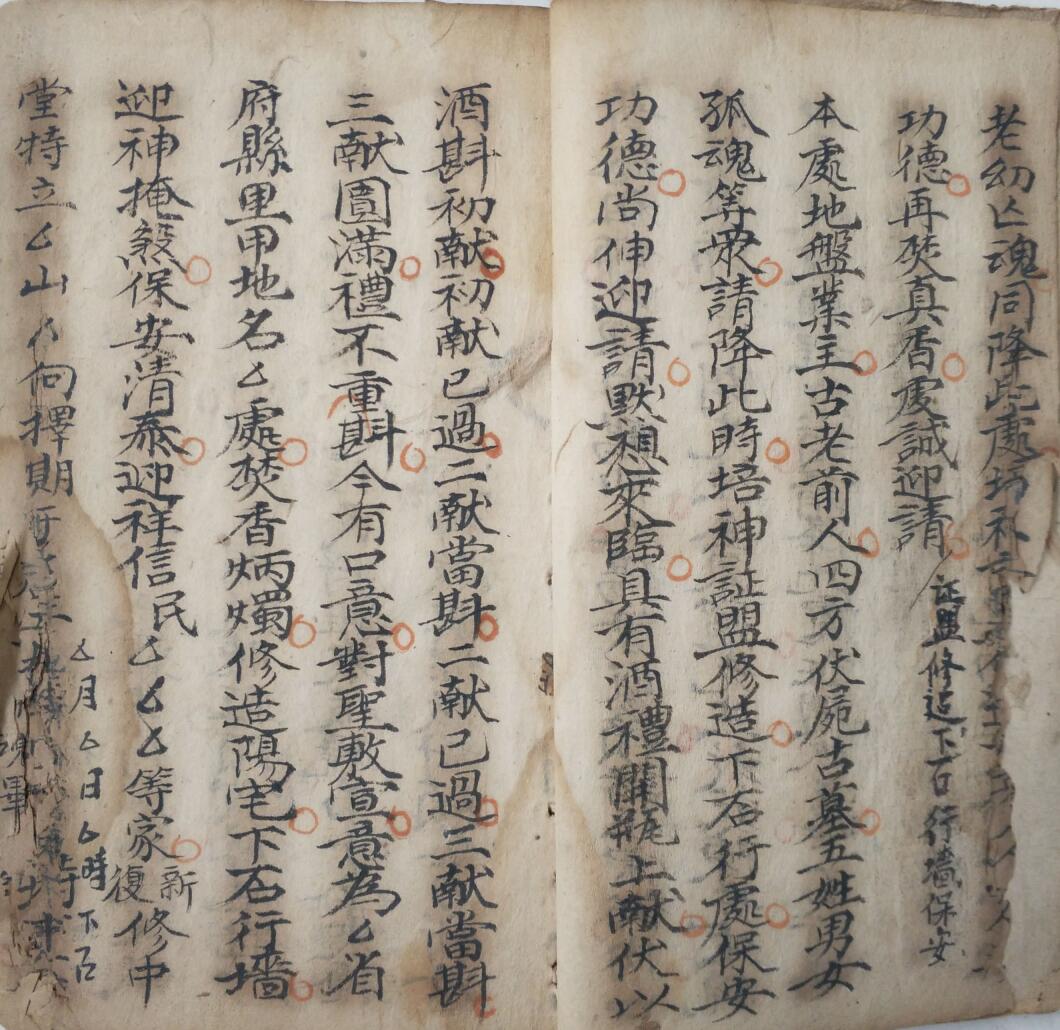 老幼亡魂同降此處培補之
功德再焚真香虔誠迎請
証盟修造下石行墻保安
本處地盤業主古老前人四方伏屍古墓五姓男女
孤魂等眾請降此時培神証盟修造下石行處保安
功德尚伸迎請默想來臨具有酒禮開瓶上献伏以
酒斟初献初献已過二献當斟二献已過三献當斟
三献圓滿禮不重斟今有口意對聖敷宣意為厶省
府縣里甲地名厶處焚香炳燭修造陽宅下石行墻
迎神掩煞保安清泰迎祥信民厶厶厶等家新復修中
堂特立厶山厶向擇期
厶月厶日厶時下石